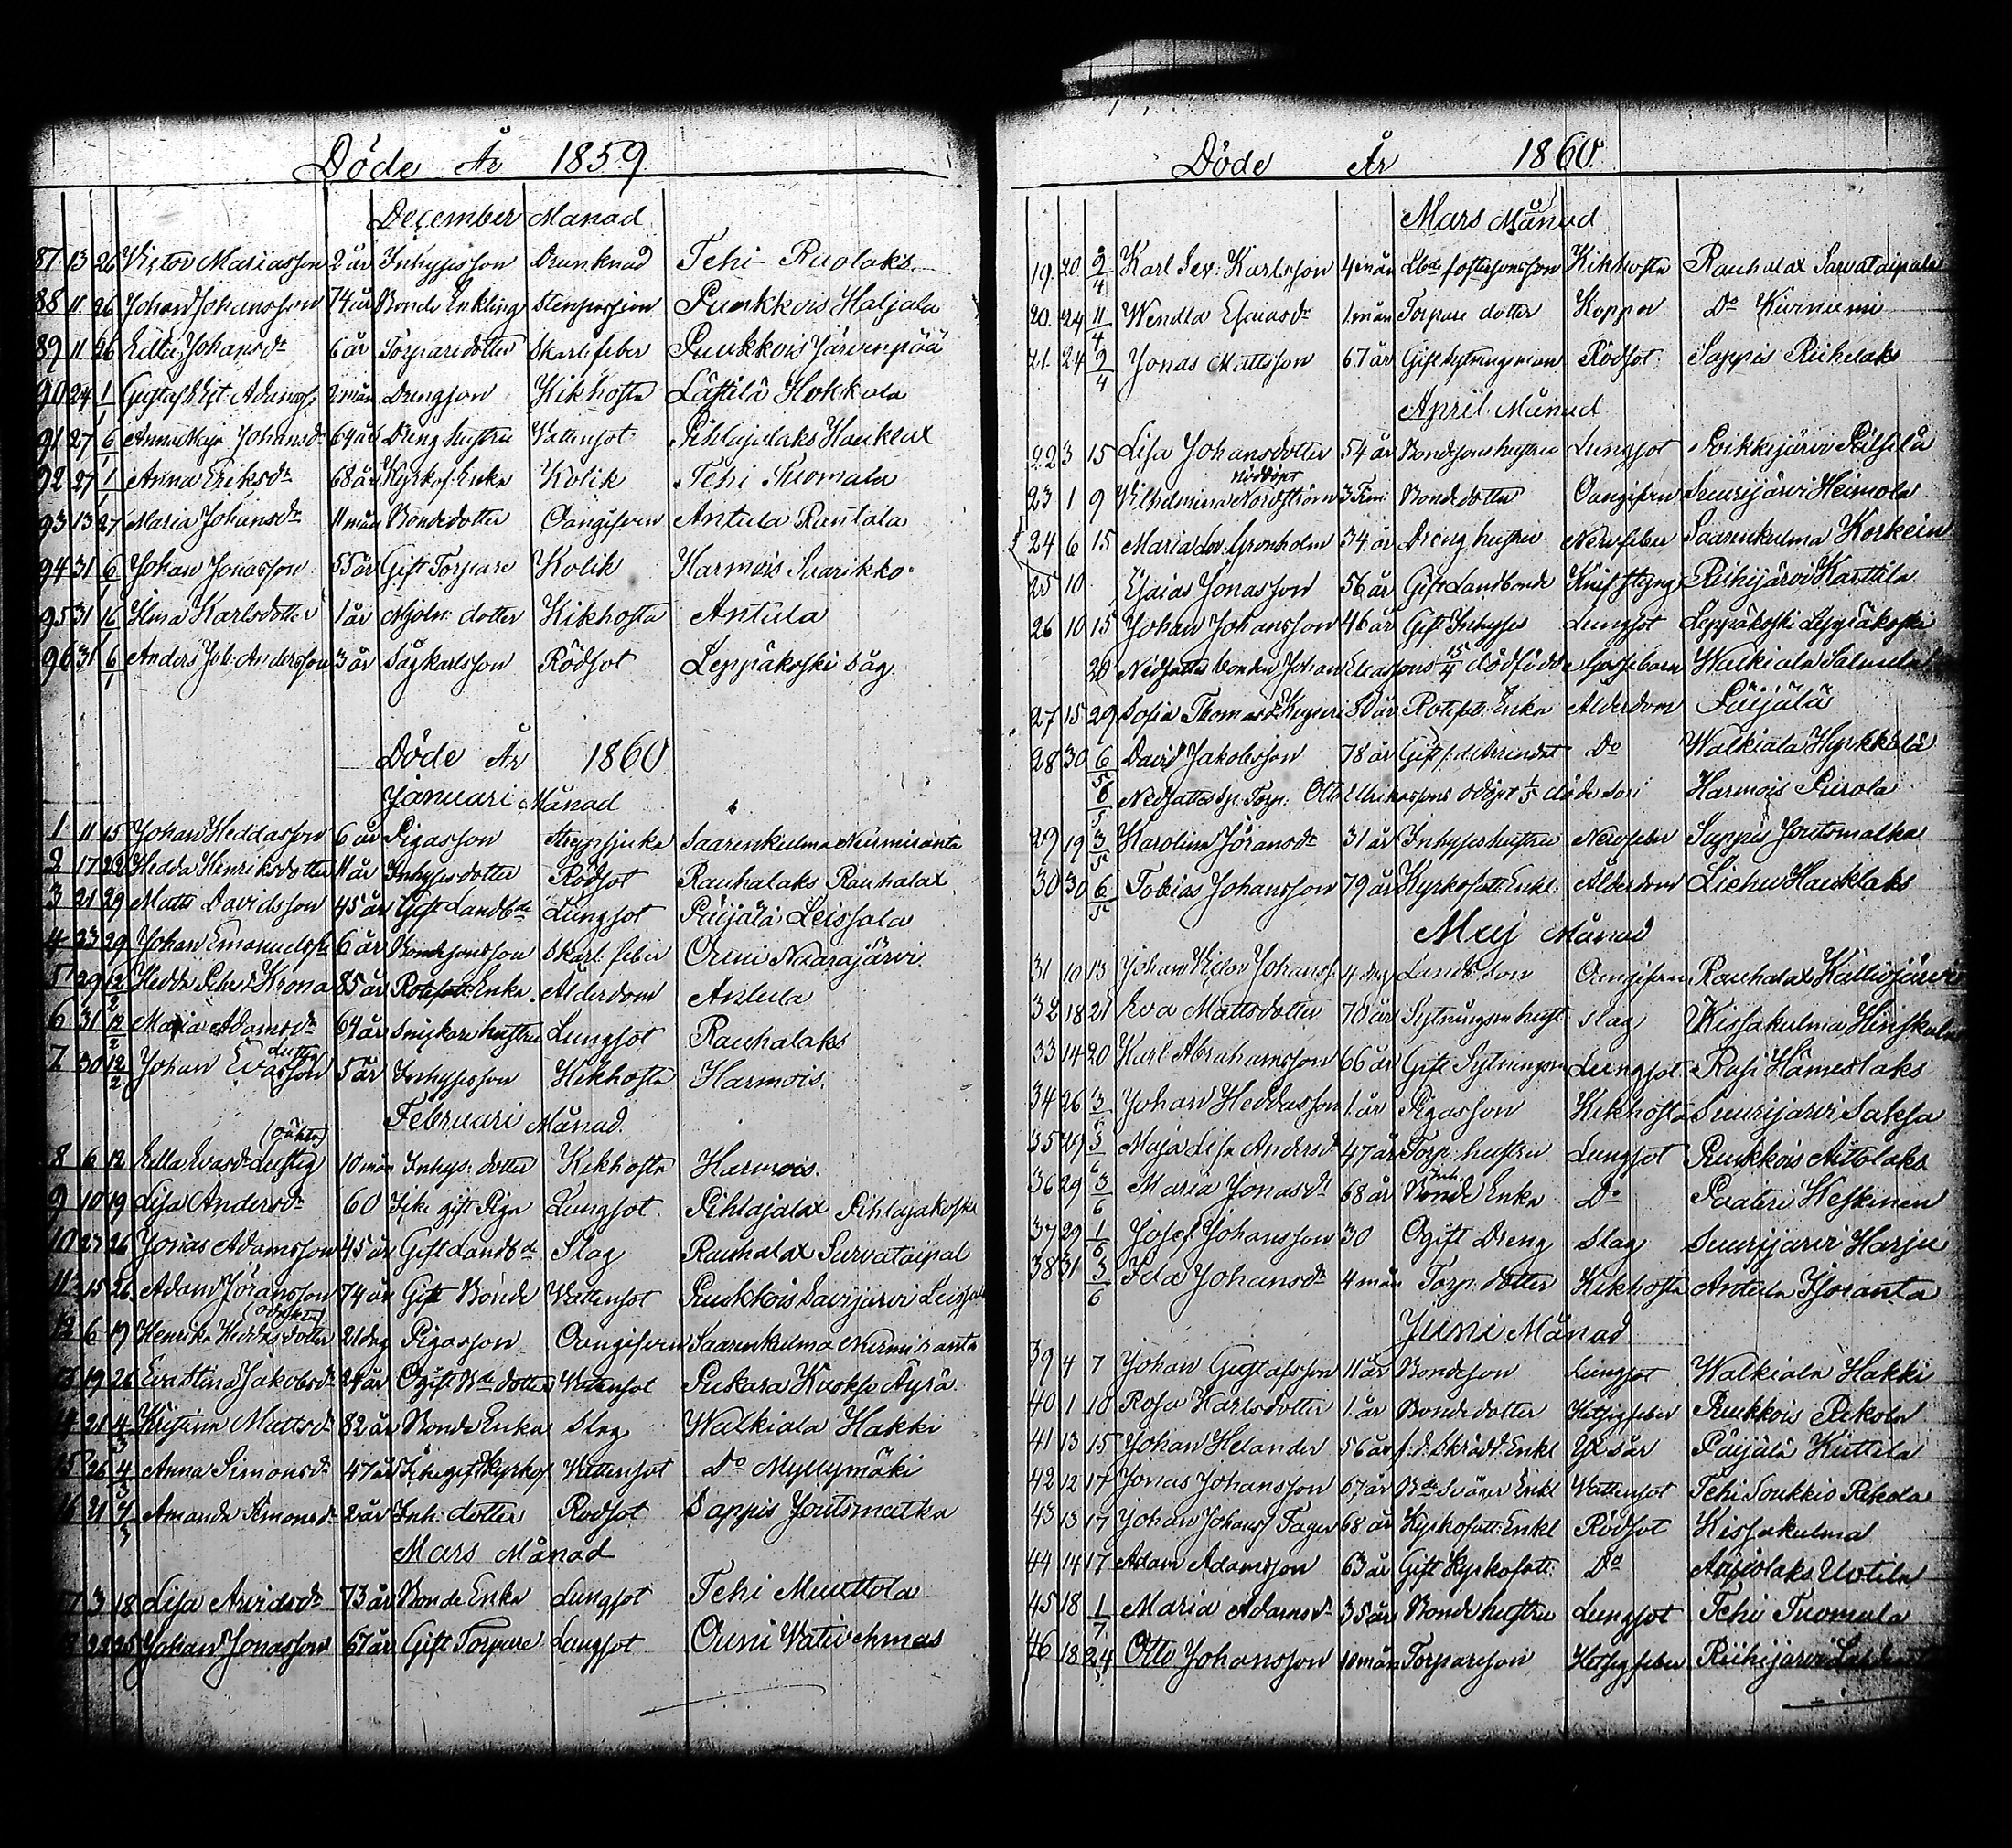 Döde År 1859
December Månad
87 13 26 Victor Mariasson 2 år Inhysesson Drunknad Tehi Ruolaks
88 11 26 Johan Johansson 74 år Bonde Enkling Stenpassion Puukkois Haljala
89 11 26 Edla Johansdr 6 år Torparedotter Skarl. feber Puukkois Järvenpää
90 24 1/1 Gustaf Adamss. 2 mån Drengson Kikhosta Lästilä Hokkala
91 27 6/1 Anna Maja Johansdr 64 år Dreng hustru Vattensot Pihlajalaks Hauklax
92 27 1/1 Anna Eriksdr 68 år Kyrkof. Enka Kolik Tehi Tuomala
93 13 27 Maria Johansdr 11 mån Bondedotter Oangifven Antula Rautala
94 31 6/1 Johan Jonasson 55 år Gift Torpare Kolik Harmois Saarikko
95 31 16/1 Ilma Karlsdotter 1 år Mjöln. dotter Kikhosta Antula
96 31 6/1 Anders Joh. Andersson 3 år Sågkarlsson Rödsot Leppäkoski Såg
Döde År 1860
Januari Månad
1 11 15 Johan Heddasson 6 år Pigasson Strypsjuka Saarenkulma Nurmiranta
2 17 22 Hedda Henriksdotter 11 år Inhysesdotter Rödsot Rauhalaks Rauhalax
3 21 29 Matts Davidsson 45 år Gift Landbde Lungsot Päijälä Leissala
4 23 29 Johan Emanuelss. 6 år Bondesonsson Skarl. feber Ouni Naarajärvi
5 29 12/2 Hedda Krona 85 år Rotefatt. Enka Ålderdom Antula
6 31 12/2 Maria Adamsdr 64 år Snickare hustru Lungsot Rauhalaks
7 30 12/2 Johan Evasson Lustig 5 år Inhysesson Kikhosta Harmois
Februari Månad
8 6 12 Edla Evasdr Lustig (oäkta) 10 mån Inhys. dotter Kikhosta Harmois
9 10 19 Lisa Andersdr 60 Icke gift Piga Lungsot Pihlajalax Pihlajakoski
10 23 26 Jonas Adamsson 45 år Gift Landbde Slag Rauhalax Survataipal
11 15 26 Adam Jöransson 74 år Gift Bonde Vattensot Puukkois Savijärvi
12 6 19 Henrika Heddasdotter (oäkta) 21 dag Pigasson Oangifven Saarenkulma Nurmiranta
13 19 26 Eva Stina Jakobsdr 24 år Ogift Bde dotter Vattensot Pukara Äyrä
14 21 4/3 Kristina Mattsdr 82 år Bonde Enka Slag Walkiala Hakki
15 26 4/3 Anna Simonsdr 47 år Icke gift Kyrkof. Vattensot Do Myllymäki
16 21 4/3 Amanda Simonsdr 2 år Inh. dotter Rödsot Sappis Joutsmatka
Mars Månad
17 3 18 Lisa Arvidsdr 73 år Bonde Enka Lungsot Tehi Muuttola
22 25 Johan Jonasson 67 år Gift Torpare Lungsot Ouni
Döde År 1860
Mars Månad
19 20 9/4 Karl Karlsson 4 mån Kikhosta Rauhalax Sarvataipale
20 24 11/4 Wendla Esaiasdr 1 mån Torpare dotter Koppor Do Kivniemi
21 24 9/4 Jonas Mattsson 67 år Gift Sytningsman Rödsot Sappis Riihelaks
April Månad
22 3 15 Lisa Johansdotter 54 år Bondesons hustru Lungsot
23 1 9 Wilhelmina Nordström nöddöpt 3 Tim. Bondedotter Oangifven Suurijärvi Heimola
24 6 15 Maria Lov. Grönholm 34 år Dreng hustru Nervfeber Saarenkulma Korkein
25 10 Esaias Jonasson 56 år Gift Landbonde Knifstyng Riihijärvi Karttila
26 10 15 Johan Johansson 46 år Gift Inhyses Lungsot Leppäkoski Leppäkoski
20 Nedsattes bonden Johan Eliassons 15/4 dödfödde Gossebarn Walkiala Salmela
27 15 29 Sofia Thomasdr Keyseri 80 år Rotefatt. Enka Ålderdom Päijälä
28 30 6/5 David Jakobsson 78 år Gift f.d. Do Walkiala Hyrkkälä
6/5 Nedsattes Sp. Torp. Otto Ulrikassons odöpt 1/5 döde Son Harmois Purola
29 19 3/5 Karolina Jöransdr 31 år Inhyses hustru Nervfeber Sappis Joutsmatka
30 30 6/5 Tobias Johansson 79 år Kyrkofatt. Enkl. Ålderdom Liehu Hauklaks
Maj Månad
31 10 13 Johan Victor Johanss. 4 dag Landb. Son Oangifven Rauhalax Kalliojärvi
32 18 21 Eva Mattsdotter 70 år Sytningsm. hust Slag Kissakulma
33 14 20 Karl Abrahamsson 66 år Gift Sytningsm Lungsot Rapi Hämeslaks
34 26 3/6 Johan Heddasson 1 år Pigasson Kikhosta Suurijärvi Saksa
35 29 3/6 Maja Lisa Andersdr 47 år Torp. hustru Lungsot Puukkois Aitolaks
36 29 3/6 Maria Jonasdr 68 år Bonde Enka Do Puateri Heskinen
37 29 1/6 Josef Johansson 30 Ogift Dreng Slag Suurijärvi Harju
38 31 3/6 Ida Johansdr 4 mån Torp. dotter Kikhosta Antula Isoranta
Juni Månad
39 4 7 Johan Gustafsson 11 år Bondeson Lungsot Walkiala Hakki
40 1 10 Rosa Karlsdotter 1 år Bondedotter Hetsigfeber Puukkois Pekola
41 13 15 Johan Helander 56 år f.d. Skräd. Enkl Yt. sår Päijälä Kuttila
42 12 17 Jonas Johansson 67 år Bde Svåger Enkl Vattensot Tehi Soukkio Pekola
43 13 17 Johan Johanss Fager 68 år Kyrkofatt. Enkl Rödsot Kissakulma
44 14 17 Adam Adamsson 63 år Gift Kyrkofatt. Do Arviolaks Uotila
45 18 1/7 Maria Adamsdr 35 år Bonde hustru Lungsot Tehi Tuomala
46 18 24 Otto Johansson 10 mån Torpareson Hetsigfeber Riihijärvi